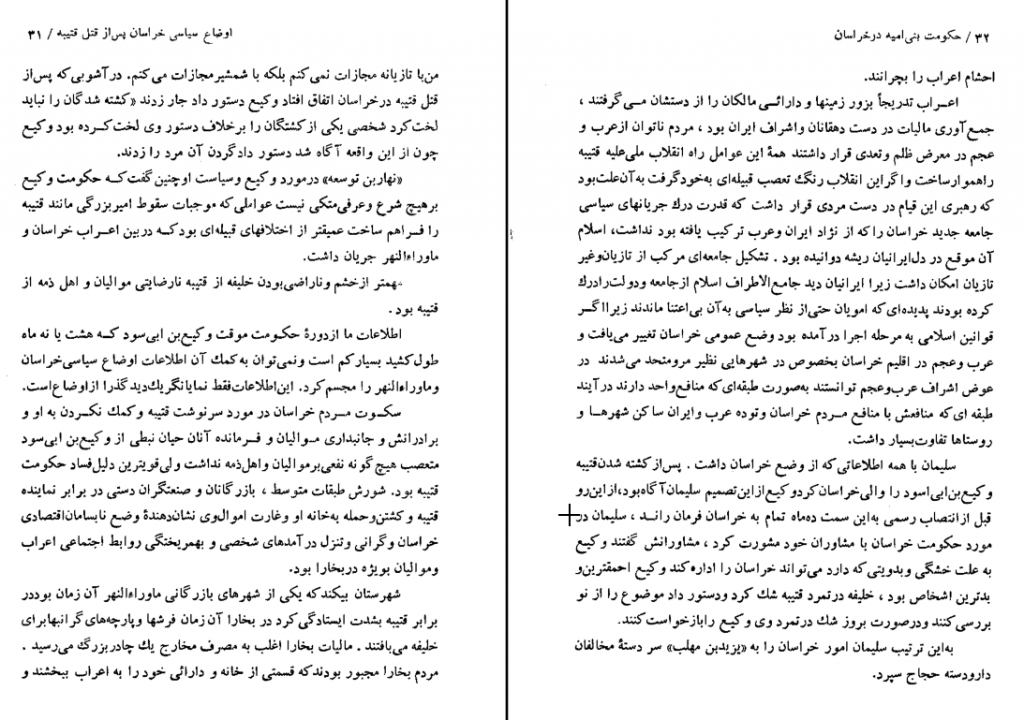 اوضاع سیاسی خراسان پس‌از قتل قتیبه / ۳۱
من‌با تازیانه مجازات نمی‌کنم بلکه با شمشیر مجازات می‌کنم. در آشوبی که پس‌از
قتل قتیبه درخراسان اتفاق افتاد وکیع دستور داد جار زدند «کشته شدگان را نباید
لخت‌کرد شخصی یکی از کشتگان را برخلاف دستور وی لخت‌کرده بود وکیع
چون از این واقعه آگاه شد دستور دادگردن آن مرد را زدند.
«نهاربن توسعه» درمورد وکیع وسیاست اوچنین گفت‌که حکومت وکیع
برهیچ شرع وعرفی‌متکی نیست عواملی‌که موجبات سقوط امیربزرگی مانند قتیبه
را فراهم ساخت عمیقتر از اختلافهای قبیله‌ای بودکه دربین اعراب خراسان و
ماوراءالنهر جریان داشت.
مهمتر ازخشم وناراضی‌بودن خلیفه از قتیبه نارضایتی موالیان و اهل ذمه از
قتیبه بود .
اطلاعات ما ازدورهٔ حکومت موقت وکیع‌بن ابی‌سود که هشت یا نه ماه
طول‌کشید بسیارکم است ونمی‌توان به‌کمک آن اطلاعات اوضاع سیاسی‌خراسان
وماوراءالنهر را مجسم‌کرد. این‌اطلاعات‌فقط نمایانگریک‌دیدگذرا ازاوضاع‌است.
سکوت مردم خراسان در مورد سرنوشت قتیبه وکمک نکردن به او و
برادرانش و جانبداری موالیان و فرمانده آنان حیان نبطی از وکیع‌بن ابی‌سود
متعصب هیچ‌گونه نفعی‌برموالیان واهل‌ذمه نداشت ولی‌قویترین دلیل‌فساد حکومت
قتیبه بود. شورش طبقات متوسط ، بازرگانان و صنعتگران دستی در برابر نماینده
قتیبه و کشتن‌وحمله به‌خانه او وغارت اموال‌وی نشان‌دهندهٔ وضع نابسامان‌اقتصادی
خراسان وگرانی وتنزل درآمدهای شخصی و بهمریختگی روابط اجتماعی اعراب
وموالیان بویژه دربخارا بود.
شهرستان بیکندکه یکی از شهرهای بازرگانی ماوراءالنهر آن زمان بوددر
برابر قتیبه بشدت ایستادگی‌کرد در بخارا آن زمان فرشها وپارچه‌های‌گرانبهابرای
خلیفه می‌بافتند . مالیات بخارا اغلب به مصرف مخارج یک چادربزرگ می‌رسید .
مردم بخارا مجبور بودندکه قسمتی از خانه و دارائی خود را به اعراب ببخشند و
۳۲ / حکومت بنی‌امیه درخراسان
احشام اعراب را بچرانند.
اعراب تدریجاً بزور زمینها و دارائی مالکان را از دستشان می‌گرفتند ،
جمع‌آوری مالیات در دست دهقانان واشراف ایران بود ، مردم ناتوان ازعرب و
عجم در معرض ظلم وتعدی قرار داشتند همهٔ این عوامل راه انقلاب ملی‌علیه قتیبه
راهموارساخت واگراین انقلاب رنگ تعصب قبیله‌ای به‌خودگرفت به‌آن‌علت‌بود
که رهبری این قیام در دست مردی قرار داشت که قدرت درک جریانهای سیاسی
جامعه جدید خراسان راکه از نژاد ایران وعرب ترکیب یافته بود نداشت، اسلام
آن موقع در دل‌ایرانیان ریشه دوانیده بود . تشکیل جامعه‌ای مرکب از تازیان‌وغیر
تازیان امکان داشت زیرا ایرانیان دید جامع‌الأطراف اسلام ازجامعه ودولت‌رادرک
کرده بودند پدیده‌ای‌که امویان حتی‌از نظر سیاسی به‌آن بی‌اعتنا ماندند زیرااگر
قوانین اسلامی به مرحله اجرا درآمده بود وضع عمومی خراسان تغییر می‌یافت و
عرب وعجم در اقلیم خراسان بخصوص در شهرهایی نظیر مرومتحد می‌شدند در
عوض اشراف عرب‌وعجم توانستند به‌صورت طبقه‌ای‌که منافع‌واحد دارند درآیند
طبقه ای‌که منافعش با منافع مردم خراسان وتوده عرب وایران ساکن شهرها و
روستاها تفاوت‌بسیار داشت.
سلیمان با همه اطلاعاتی‌که از وضع خراسان داشت . پس‌ازکشته شدن‌قتیبه
وکیع‌بن‌ابی‌اسود را والی‌خراسان‌کردوکیع ازاین‌تصمیم سلیمان آگاه‌بود،ازاین‌رو
قبل ازانتصاب رسمی به‌این سمت ده‌ماه تمام به خراسان فرمان راند ، سلیمان در
مورد حکومت خراسان با مشاوران خود مشورت کرد ، مشاورانش گفتند وکیع
به علت خشگی وبدویتی که دارد می‌تواند خراسان را اداره‌کند وکیع احمقترین‌و
بدترین اشخاص بود ، خلیفه درتمرد قتیبه شک کرد ودستور داد موضوع را از نو
بررسی‌کنند ودرصورت بروز شک درتمرد وی وکیع رابازخواست‌کنند.
به‌این ترتیب سلیمان امور خراسان را به «یزیدبن مهلب» سر دستهٔ مخالفان
دارودسته حجاج سپرد.